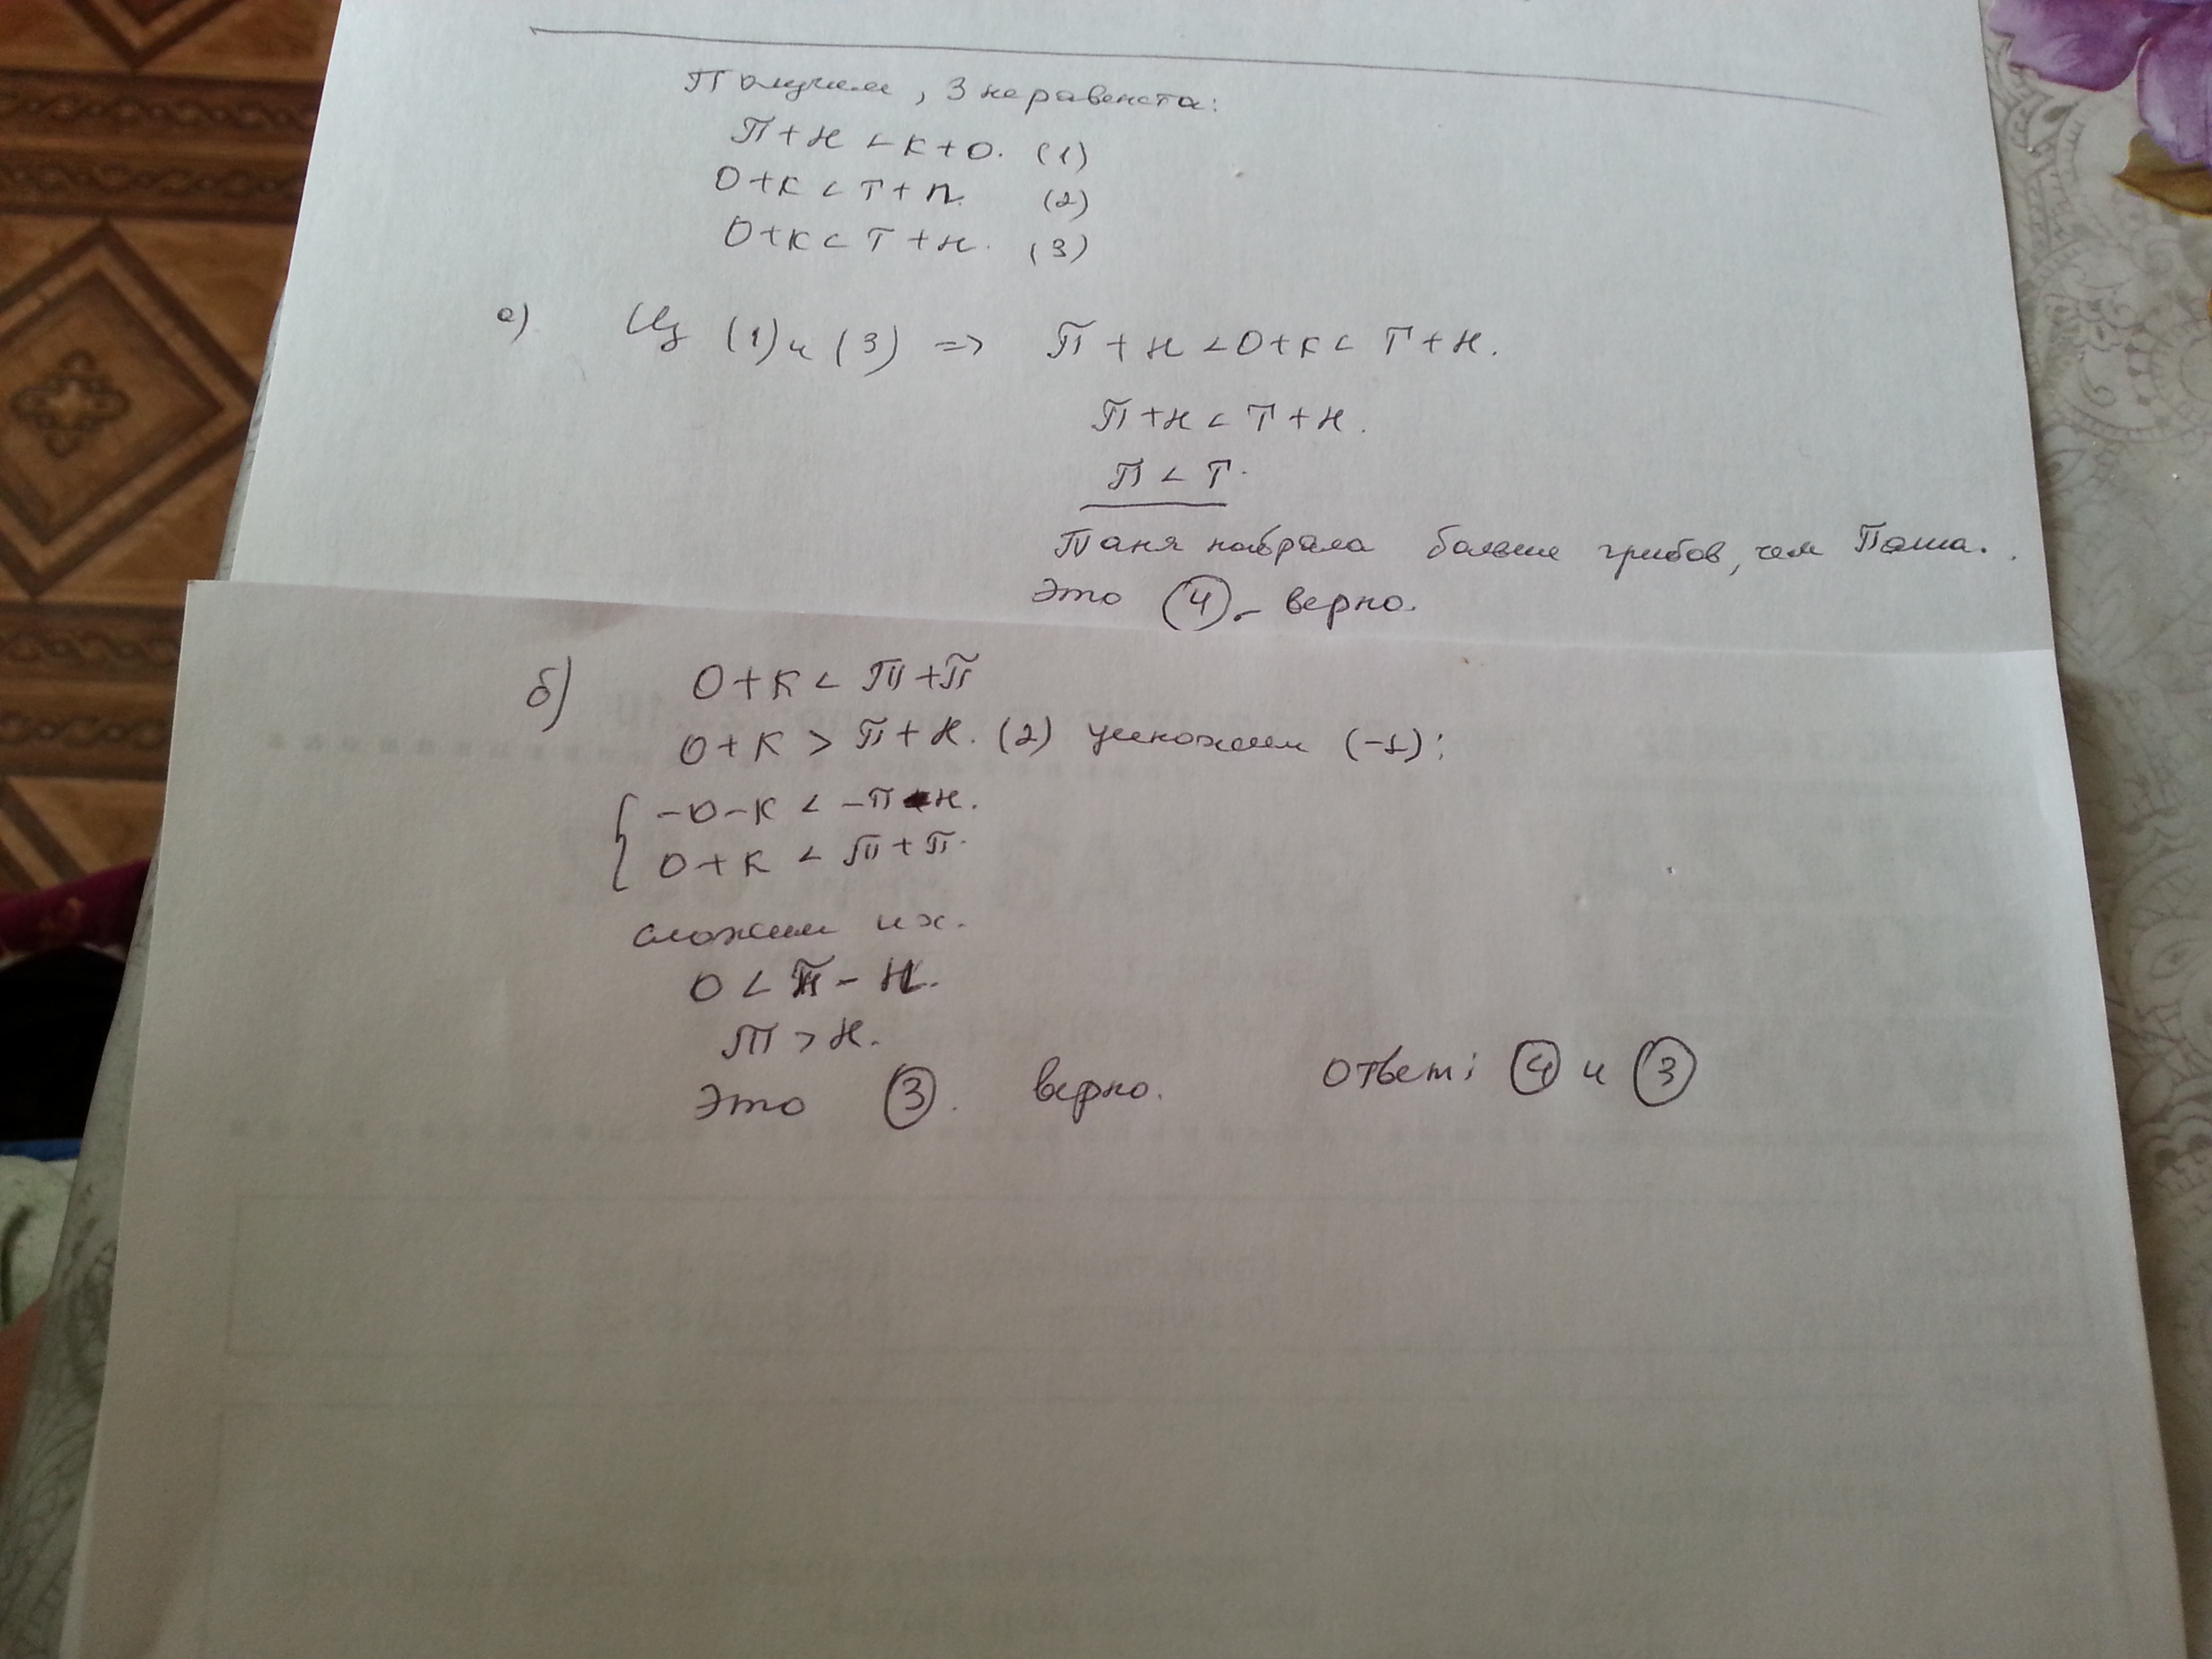 Получим, 3 неравенста:
П + Н < К + О. (1)
О + К < Т + П. (2)
О + К < Т + Н. (3)
а) Из (1) и (3) => П + Н < О + К < Т + Н.
П + Н < Т + Н.
П < Т.
Таня набрала больше грибов, чем Паша.
Это (4) - верно.
б) О + К < Т + П
О + К > П + Н. (2) умножим (-1):
{ -О - К < -П - Н.
О + К < Т + П.
сложим их.
0 < Т - Н.
Т > Н.
Это (3). верно. Ответ: (4) и (3)